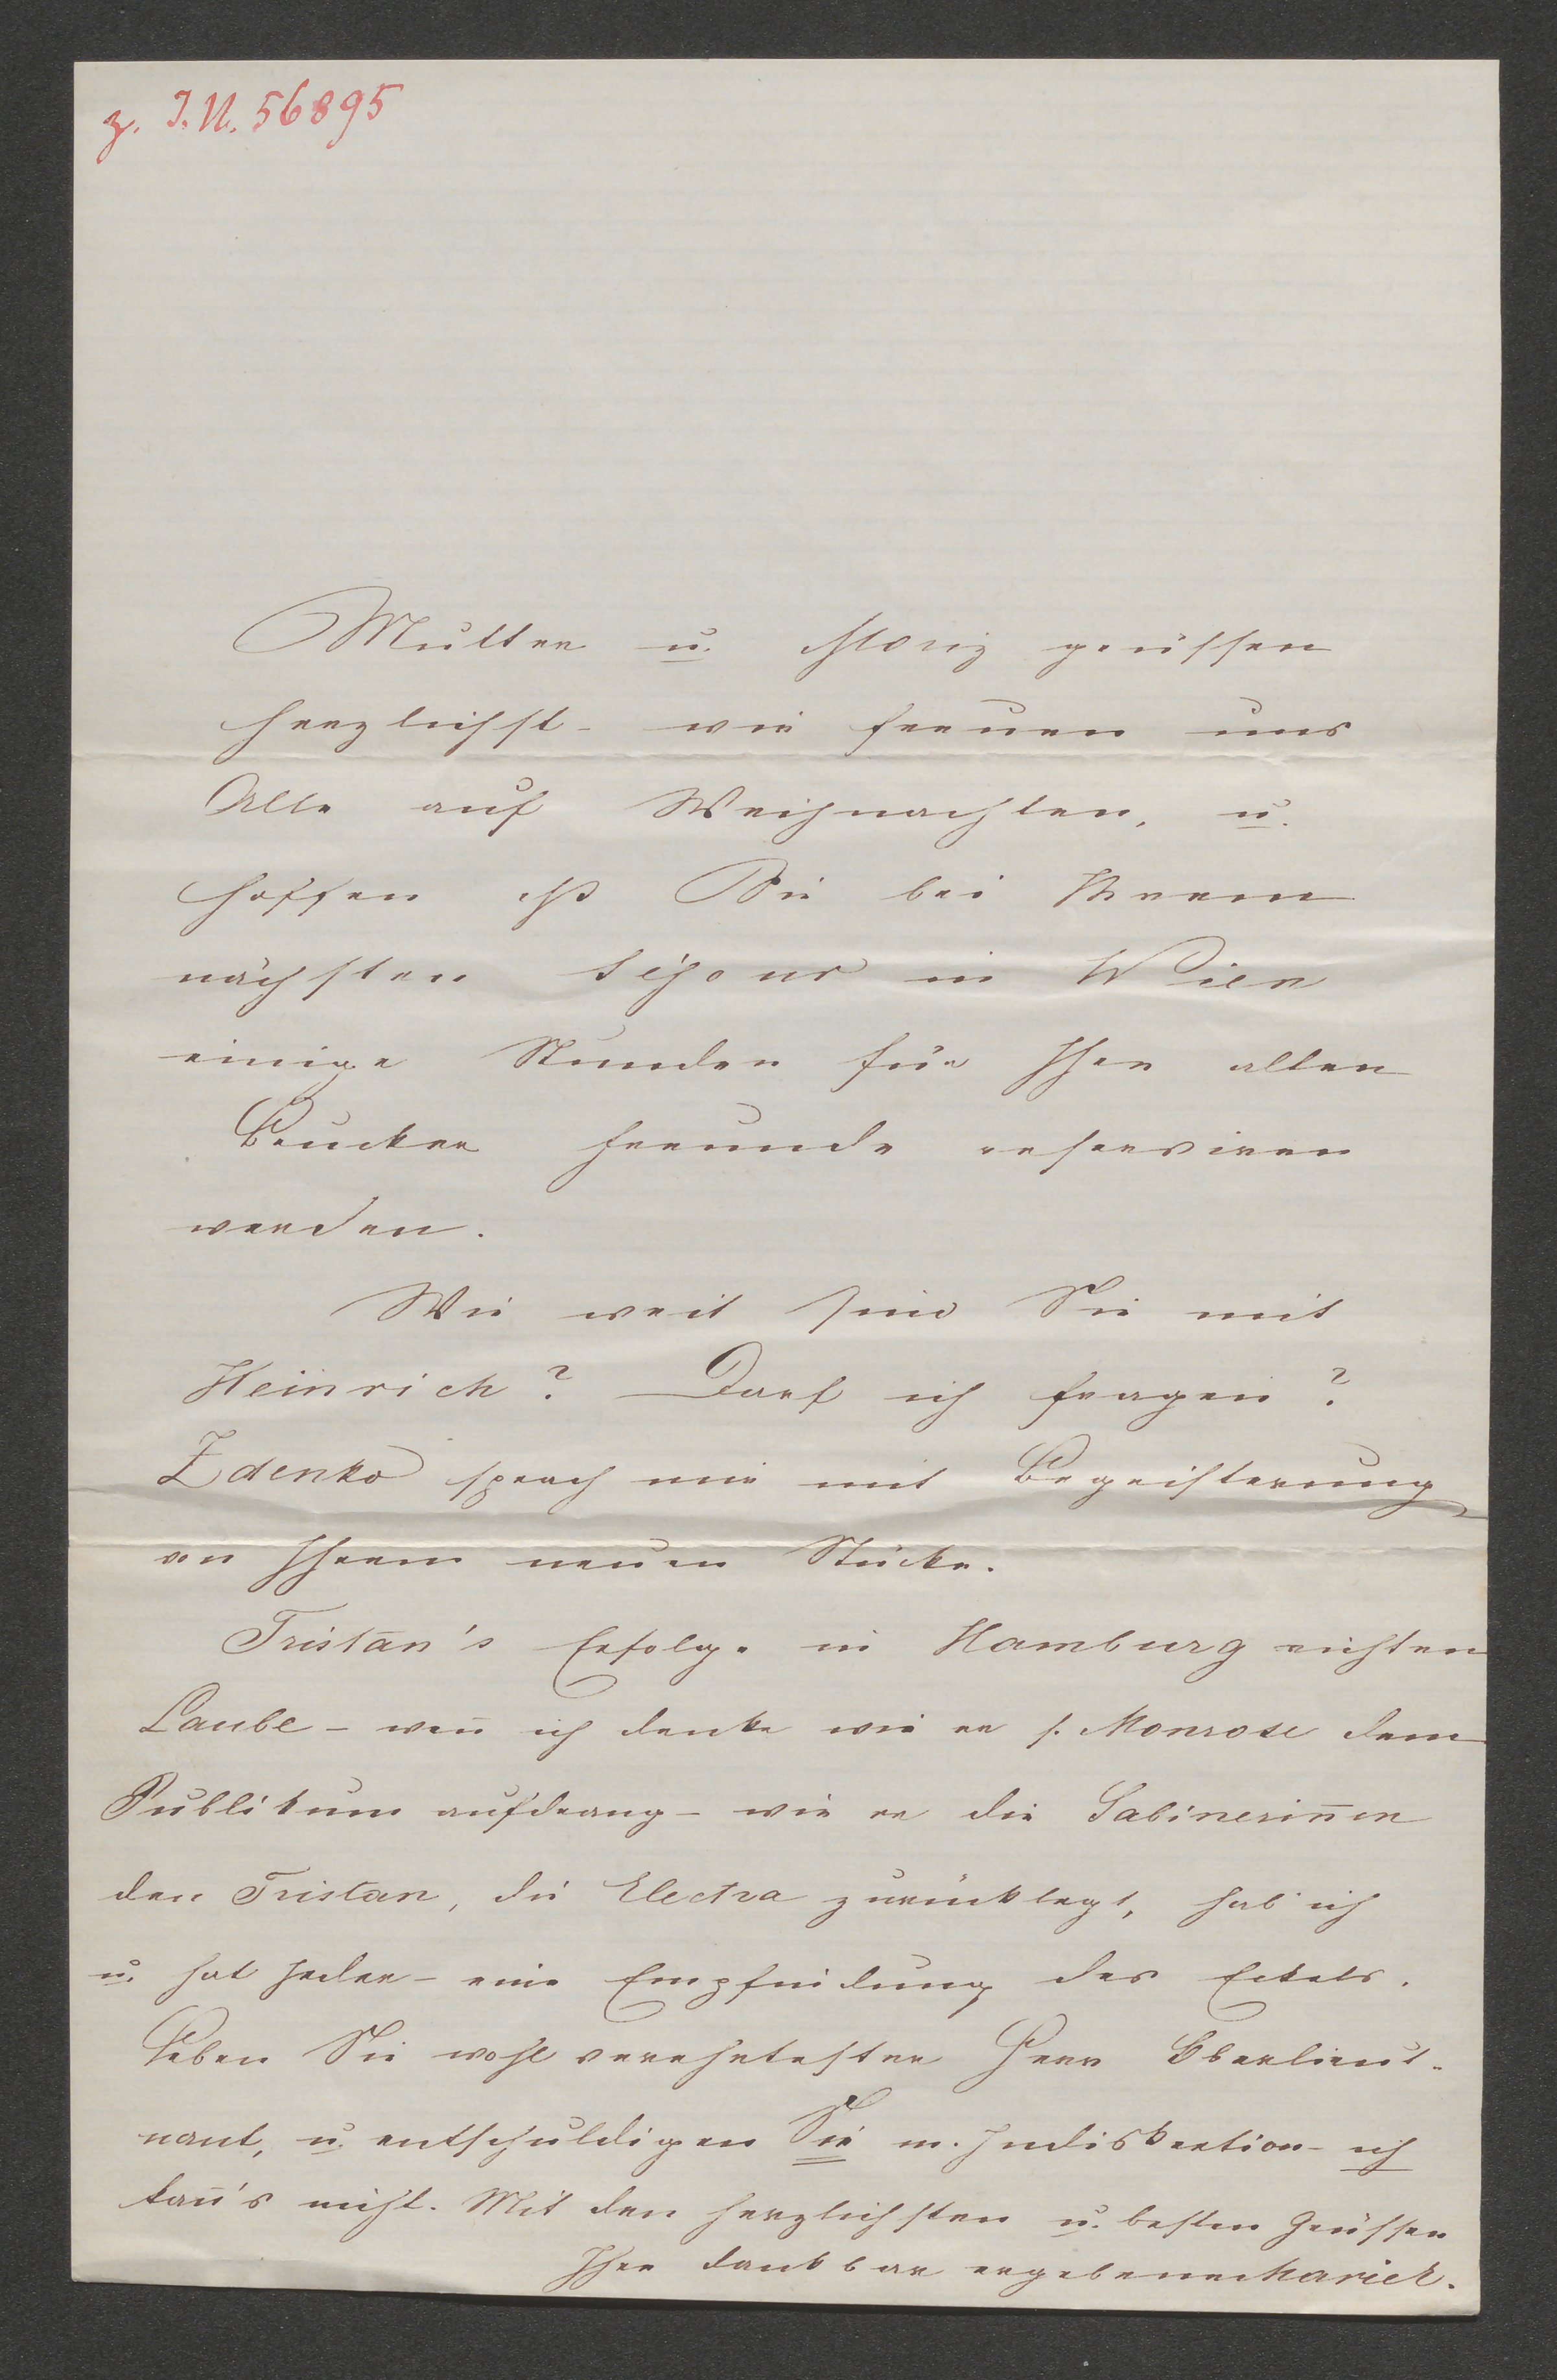 z. I.N. 56895
Mutter u. Moriz grüssen
herzlichst - wir freuen uns
Alle auf Weihnachten, u.
hoffen dß Sie bei Ihrem
nächsten séjour in Wien
einige Stunden für Ihre alten
Brucker Freunde reserviren
werden.
Wie weit sind Sie mit
Heinrich? Darf ich fragen?
Zdenko sprach mir mit Begeisterung
von Ihrem neuen Stücke.
Tristan's Erfolge in Hamburg richten
Laube - wen̄ ich denke wie er s. Monrose dem
Publikum aufdrang - wie er die Sabinerin̄en
den Tristan, die Electra zurücklegt, hab' ich
u. hat Jeder - eine Empfindung des Eckels.
Leben Sie wohl verehrtester Herr Oberlieut-
nant, u. entschuldigen Sie m. Indiskretion - ich
kan̄'s nicht. Mit den herzlichsten u. besten Grüssen
Ihre dankbar ergebene